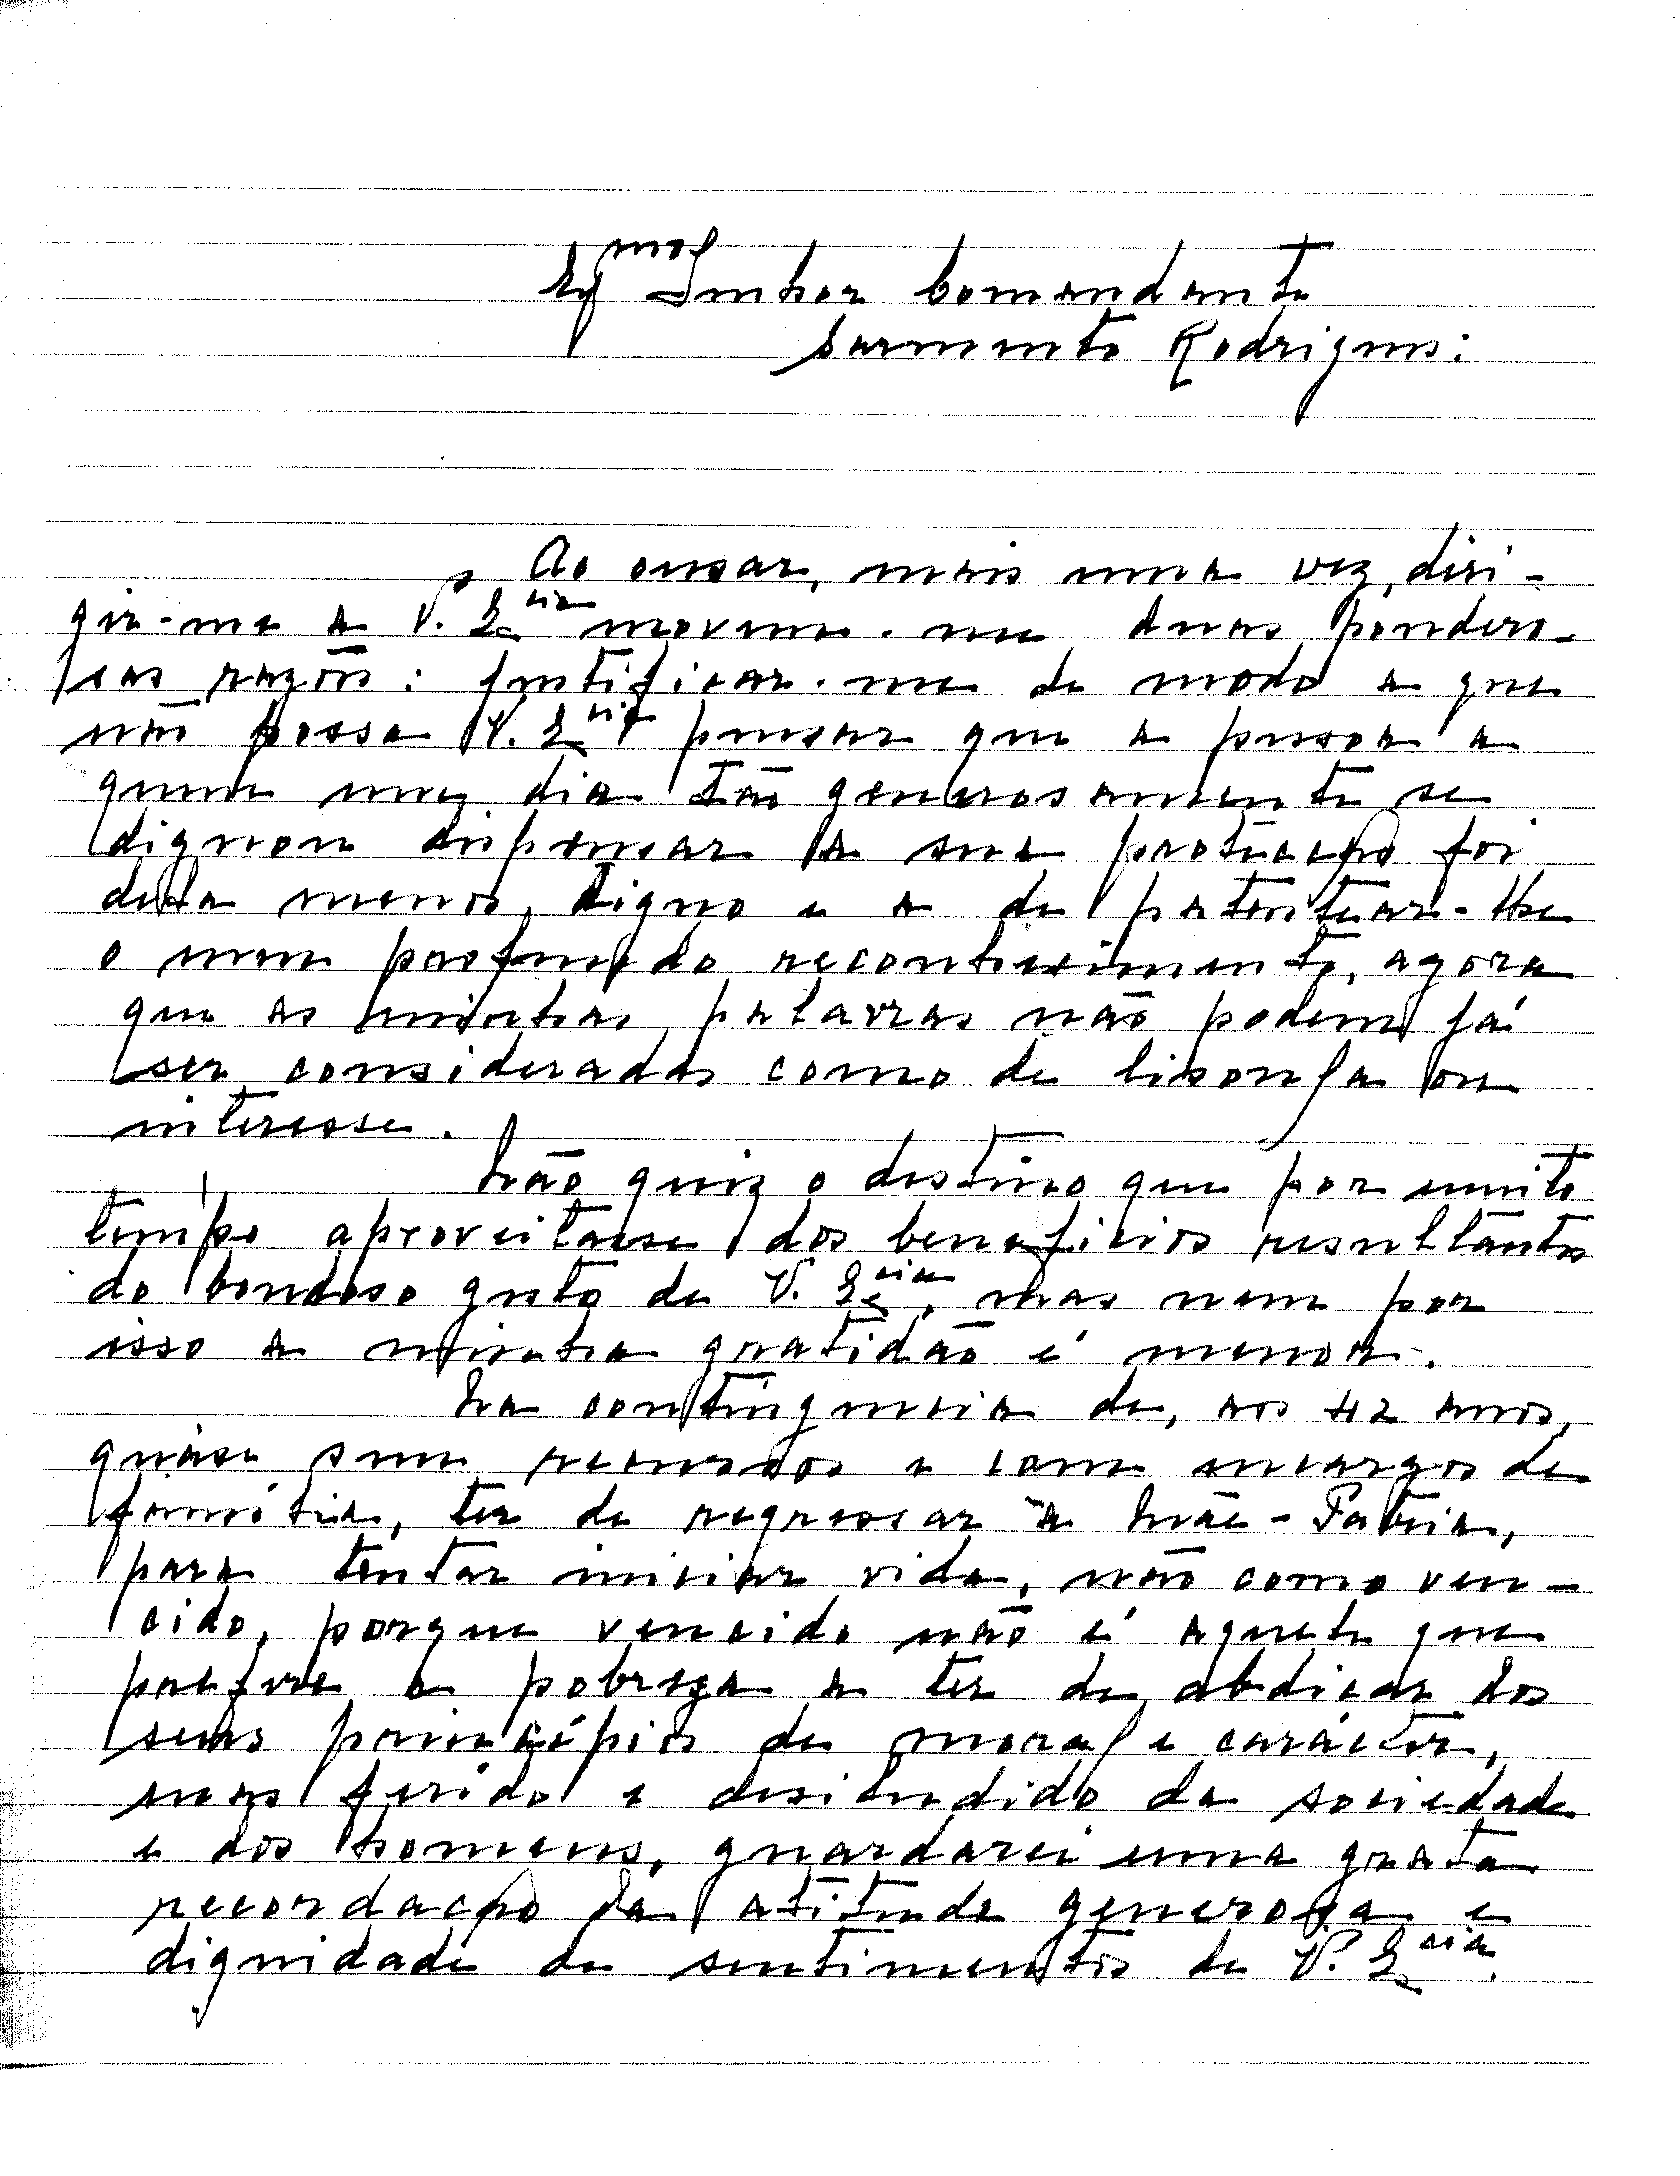 Exmo Senhor Comandante
Sarmento Rodrigues:
Ao ousar, mais uma vez, diri-
gir-me a V. Excia movem-me duas pondero-
sas razões: justificar-me de modo a que
não possa V. Excia pensar que a pessoa a
quem um dia tão generosamente se
dignou dispensar a sua protecção foi
dela menos digno e a de patentear-lhe
o meu profundo reconhecimento, agora
que as minhas palavras não podem já
ser consideradas como de lisonja ou
interesse.
Não quiz o destino que por muito
tempo aproveitasse dos beneficios resultantes
do bondoso gesto de V. Excia, mas nem por
isso a minha gratidão é menor.
Na contingencia de, aos 42 anos,
quási sem recursos e com encargos de
familia, ter de regressar à Mãe-Patria,
para tentar iniciar vida, não como ven-
cido, porque vencido não é aquele que
prefere a pobreza a ter de abdicar dos
seus princípios de moral e carácter,
mas ferido e desiludido da sociedade
e dos homens, guardarei uma grata
recordação da atitude generosa e
dignidade de sentimentos de V. Excia.